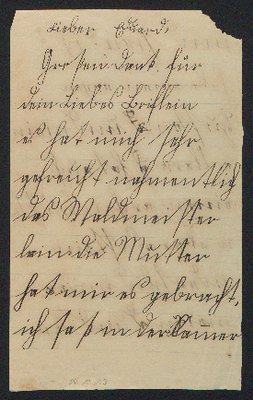 Lieber Eduard,
Grosen Dank für
dein Liebes Brieflein
es hat mich sehr
gefreucht nahmentlich
das Waldmeister
lein: die Mutter
hat mir es gebracht,
ich saß in der Kamer